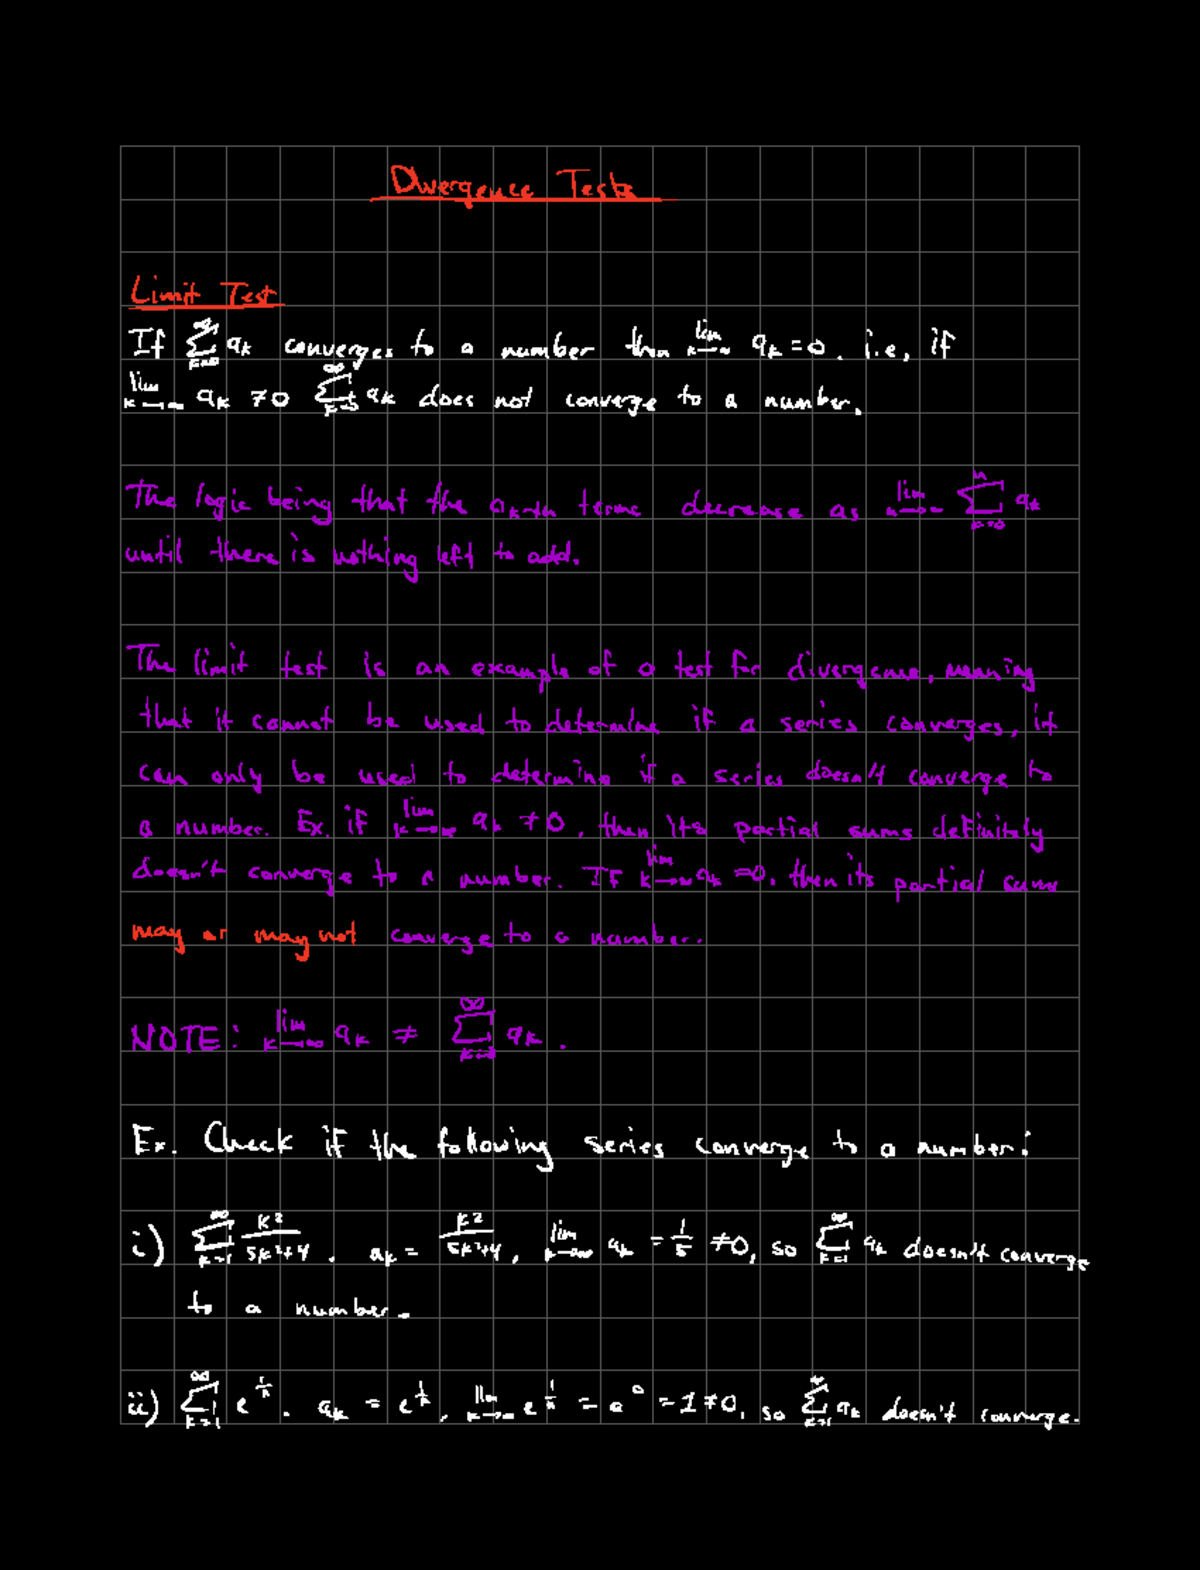 Divergence Tests
Limit Test
If ∑_{k=0}^{∞} a_k converges to a number then lim_{k→∞} a_k = 0. i.e, if
lim_{k→∞} a_k ≠ 0 ∑_{k=0}^{∞} a_k does not converge to a number.
The logic being that the terms decrease as lim_{n→∞} ∑_{k=0}^{n} a_k
until there is nothing left to add.
The limit test is an example of a test for divergence, meaning
that it cannot be used to determine if a series converges, it
can only be used to determine if a series doesn't converge to
a number. Ex. if lim_{k→∞} a_k ≠ 0, then its partial sums definitely
doesn't converge to a number. If lim_{k→∞} a_k = 0, then its partial sums
may or may not converge to a number.
NOTE: lim_{k→∞} a_k ≠ ∑_{k=0}^{∞} a_k.
Ex. Check if the following series converge to a number:
i) ∑_{k=1}^{∞} k²/(5k²+4). a_k = k²/(5k²+4), lim_{k→∞} a_k = 1/5 ≠ 0, so ∑_{k=1}^{∞} a_k doesn't converge
to a number.
ii) ∑_{k=1}^{∞} e^{1/k}. a_k = e^{1/k}, lim_{k→∞} e^{1/k} = e^0 = 1 ≠ 0, so ∑_{k=1}^{∞} a_k doesn't converge.